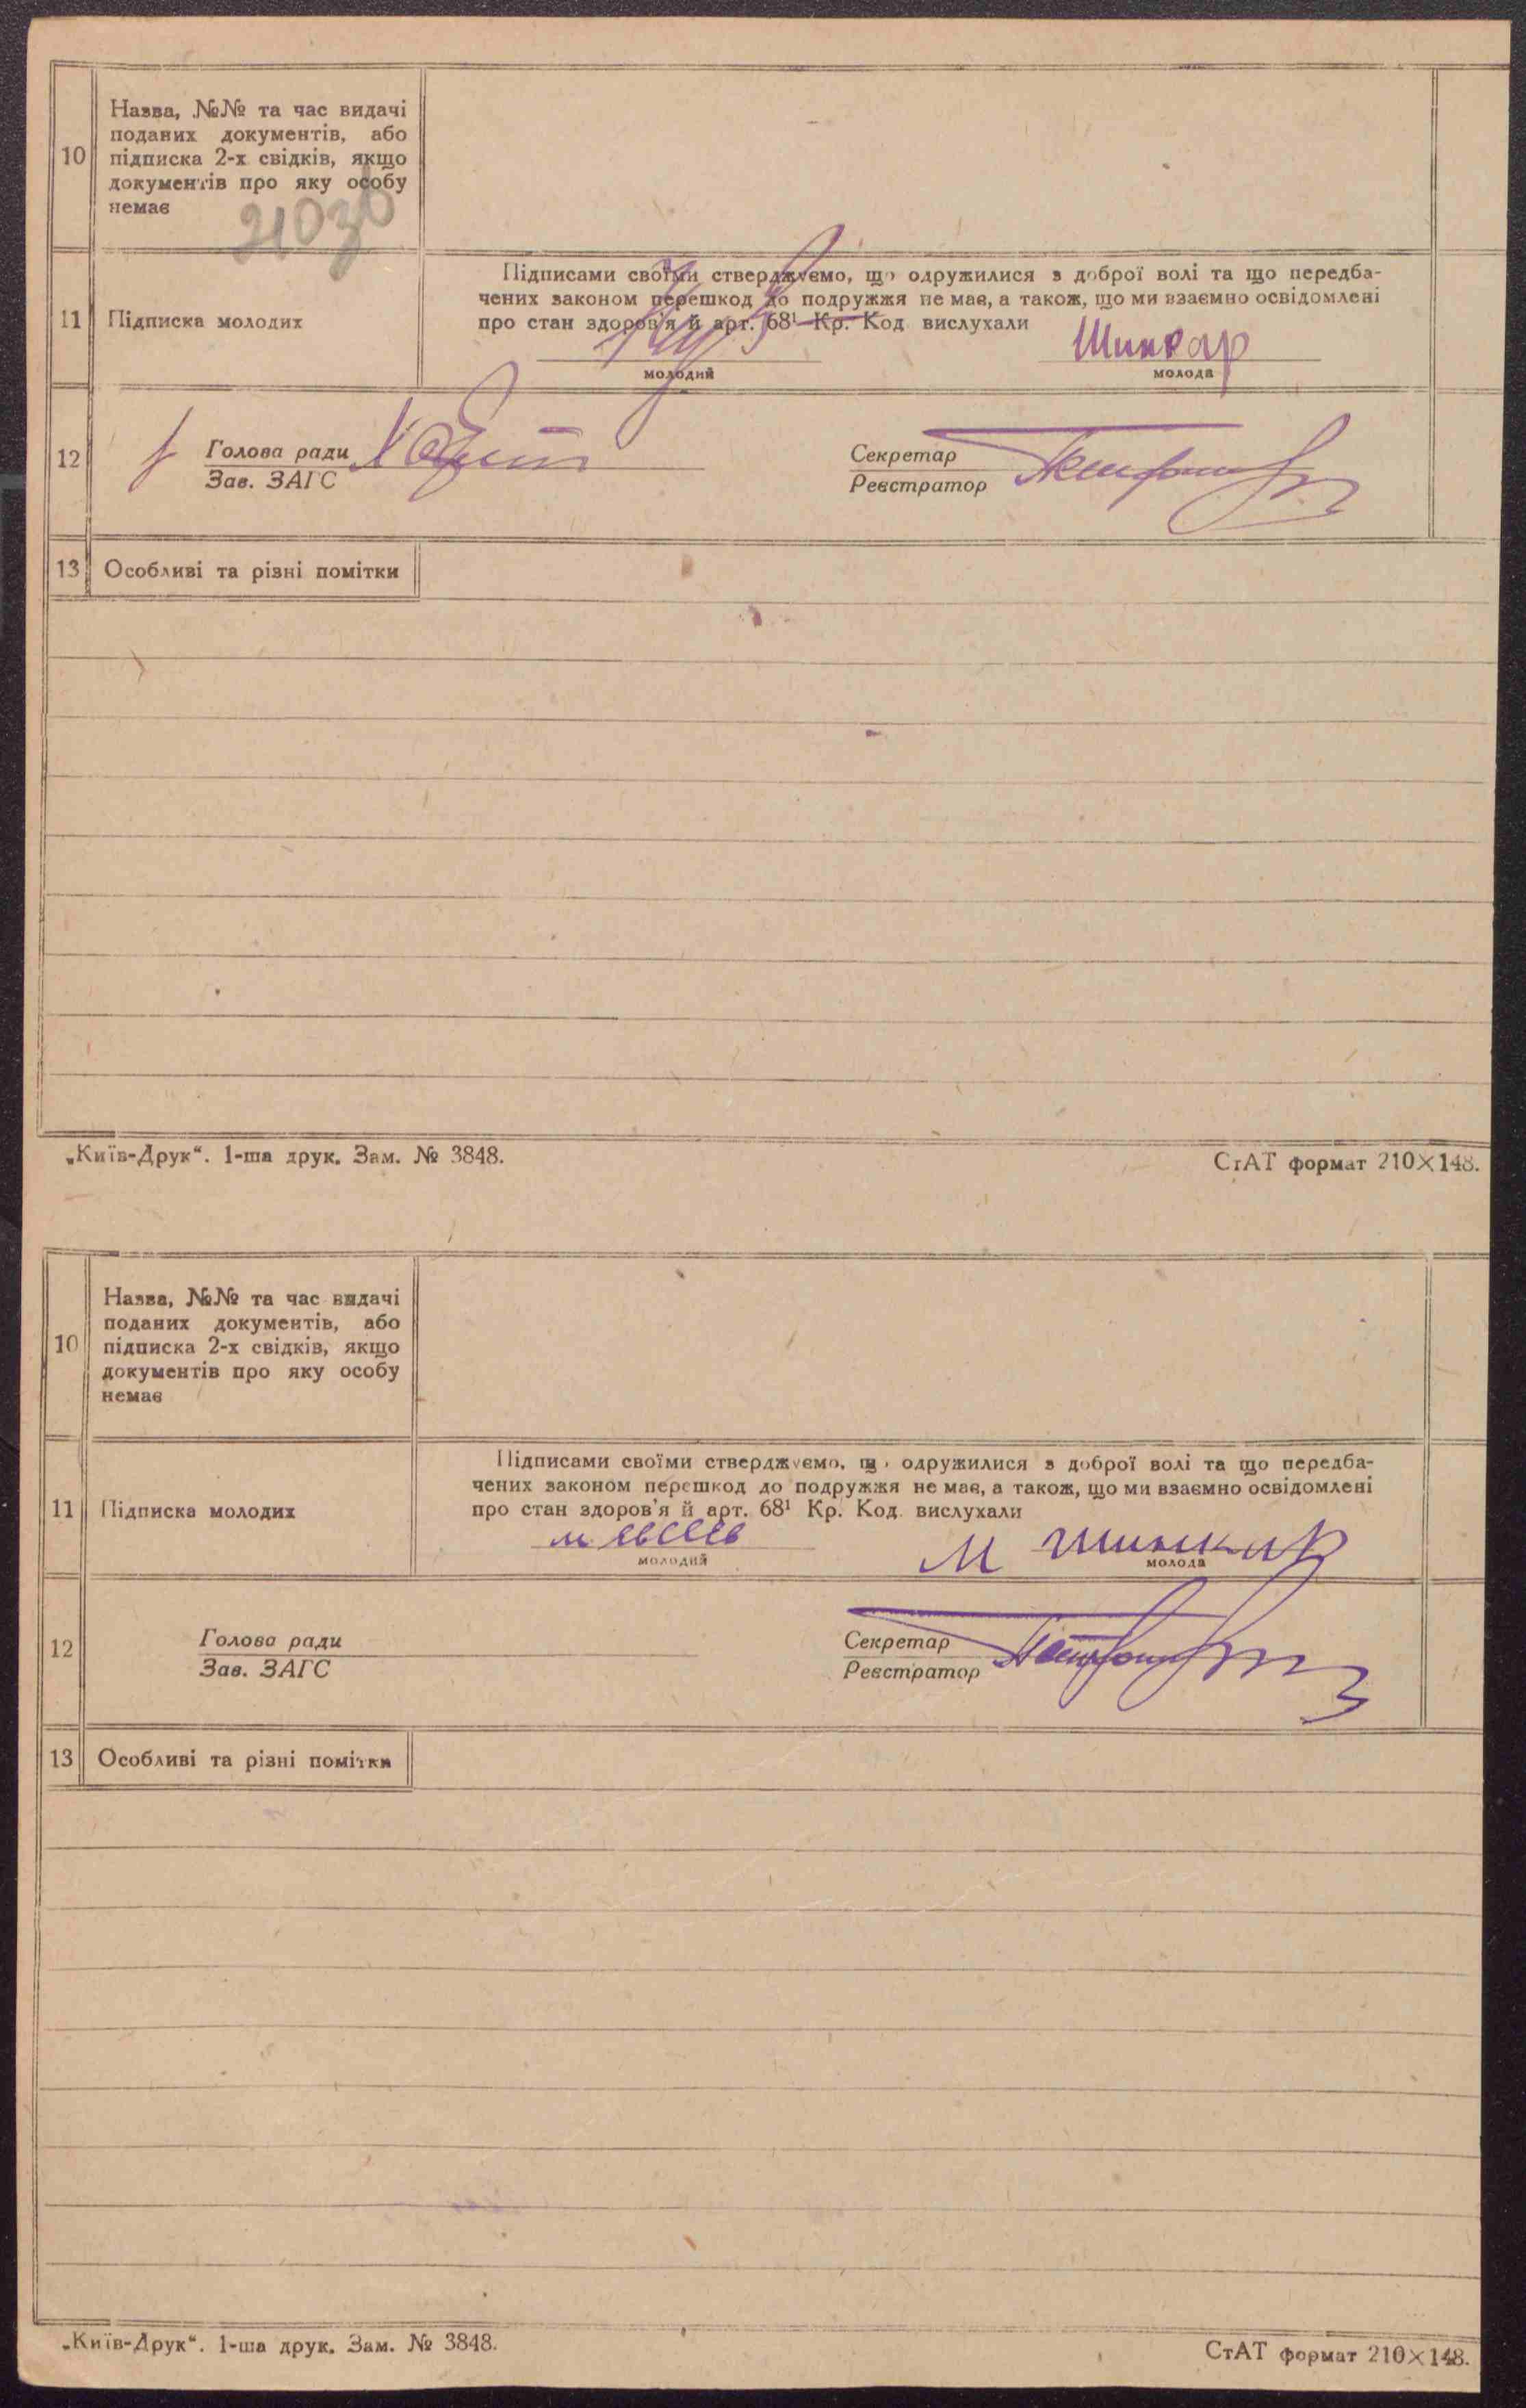 10
Назва, №№ та час видачі
поданих документів, або
підписка 2-х свідків, якщо
документів про яку особу
немає
11
Підписка молодих
Підписами своїми стверджуємо, що одружилися з доброї волі та що передба-
чених законом перешкод до подружжя не має, а також, що ми взаємно освідомлені
про стан здоров'я й арт. 68¹ Кр. Код. вислухали
Шинкар
молодий
молода
12
Голова ради
Зав. ЗАГС
Секретар
Реєстратор
13
Особливі та різні помітки
„Київ-Друк“. 1-ша друк. Зам. № 3848.
СтАТ формат 210×148.
10
Назва, №№ та час видачі
поданих документів, або
підписка 2-х свідків, якщо
документів про яку особу
немає
11
Підписка молодих
Підписами своїми стверджуємо, що одружилися з доброї волі та що передба-
чених законом перешкод до подружжя не має, а також, що ми взаємно освідомлені
про стан здоров'я й арт. 68¹ Кр. Код. вислухали
М Шинкар
молодий
молода
12
Голова ради
Зав. ЗАГС
Секретар
Реєстратор
13
Особливі та різні помітки
„Київ-Друк“. 1-ша друк. Зам. № 3848.
СтАТ формат 210×148.